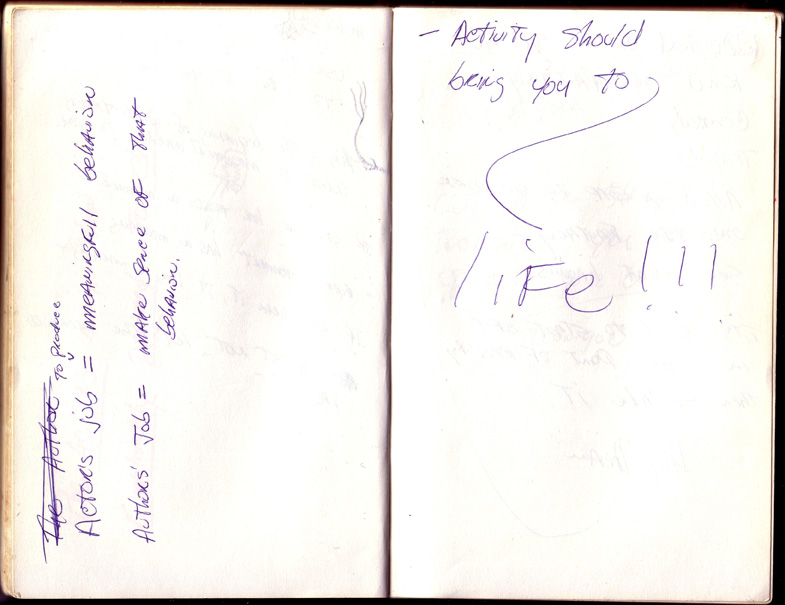 The Author
to produce
Actor's job = meaningfull behavior
Author's Job = make sence of that
behavior.
- Activity should
bring you to
life!!!